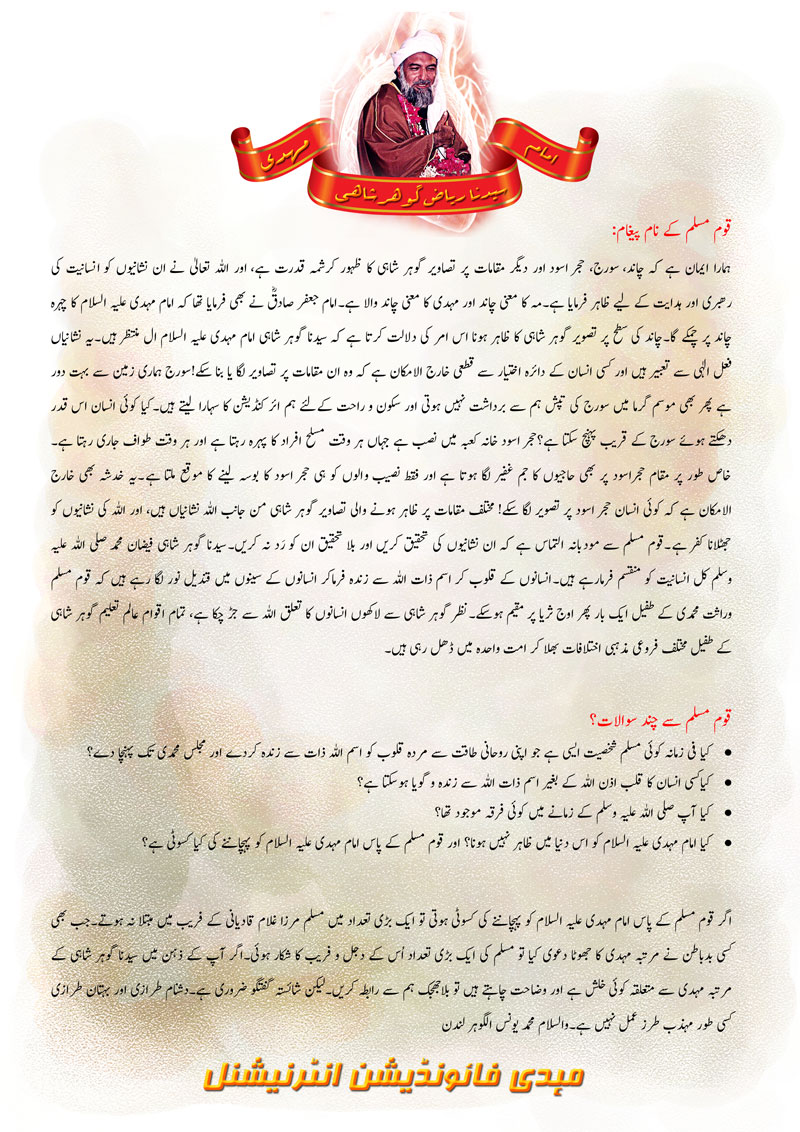 امام
مہدی
سیدنا ریاض گوہر شاہی
قوم مسلم کے نام پیغام:
ہمارا ایمان ہے کہ چاند، سورج، حجر اسود اور دیگر مقامات پر تصاویر گوہر شاہی کا ظہور کرشمہ قدرت ہے، اور اللہ تعالیٰ نے ان نشانیوں کو انسانیت کی
رھبری اور ہدایت کے لیے ظاہر فرمایا ہے۔مہ کا معنی چاند اور مہدی کا معنی چاند والا ہے۔امام جعفر صادقؓ نے بھی فرمایا تھا کہ امام مہدی علیہ السلام کا چہرہ
چاند پر چمکے گا۔چاند کی سطح پر تصویر گوہر شاہی کا ظاہر ہونا اس امر کی دلالت کرتا ہے کہ سیدنا گوہر شاہی امام مہدی علیہ السلام ال منتظر ہیں۔یہ نشانیاں
فعل الٰہی سے تعبیر ہیں اور کسی انسان کے دائرہ اختیار سے قطعی خارج الامکان ہے کہ وہ ان مقامات پر تصاویر لگا یا بنا سکے!سورج ہماری زمین سے بہت دور
ہے پھر بھی موسم گرما میں سورج کی تپش ہم سے برداشت نہیں ہوتی اور سکون و راحت کےلئے ہم ائر کنڈیشن کا سہارا لیتے ہیں۔کیا کوئی انسان اس قدر
دھکتے ہوئے سورج کے قریب پہنچ سکتا ہے؟حجر اسود خانہ کعبہ میں نصب ہے جہاں ہر وقت مسلح افراد کا پہرہ رہتا ہے اور ہر وقت طواف جاری رہتا ہے۔
خاص طور پر مقام حجراسود پر بھی حاجیوں کا جم غفیر لگا ہوتا ہے اور فقط نصیب والوں کو ہی حجر اسود کا بوسہ لینے کا موقع ملتا ہے۔یہ خدشہ بھی خارج
الامکان ہے کہ کوئی انسان حجر اسود پر تصویر لگا سکے! مختلف مقامات پر ظاہر ہونے والی تصاویر گوہر شاہی من جانب اللہ نشانیاں ہیں، اور اللہ کی نشانیوں کو
جھٹلانا کفر ہے۔قوم مسلم سے مودبانہ التماس ہے کہ ان نشانیوں کی تحقیق کریں اور بلا تحقیق ان کو رَد نہ کریں۔سیدنا گوہر شاہی فیضان محمد صلی اللہ علیہ
وسلم کل انسانیت کو منقسم فرمارہے ہیں۔انسانوں کے قلوب کو اسم ذات اللہ سے زندہ فرماکر انسانوں کے سینوں میں قندیل نور لگا رہے ہیں کہ قوم مسلم
وراثت محمدی کے طفیل ایک بار پھر اوج ثریا پر مقیم ہوسکے۔نظر گوہر شاہی سے لاکھوں انسانوں کا تعلق اللہ سے جڑ چکا ہے، تمام اقوام عالم تعلیم گوہر شاہی
کے طفیل مختلف فروعی مذہبی اختلافات بھلا کر امت واحدہ میں ڈھل رہی ہیں۔
قوم مسلم سے چند سوالات؟
• کیا فی زمانہ کوئی مسلم شخصیت ایسی ہے جو اپنی روحانی طاقت سے مردہ قلوب کو اسم اللہ ذات سے زندہ کردے اور مجلس محمدی تک پہنچا دے؟
• کیاکسی انسان کا قلب اذن اللہ کے بغیر اسم ذات اللہ سے زندہ و گویا ہوسکتا ہے؟
• کیا آپ صلی اللہ علیہ وسلم کے زمانے میں کوئی فرقہ موجود تھا؟
• کیا امام مہدی علیہ السلام کو اس دنیا میں ظاہر نہیں ہونا؟ اور قوم مسلم کے پاس امام مہدی علیہ السلام کو پہچاننے کی کیا کسوٹی ہے؟
اگر قوم مسلم کے پاس امام مہدی علیہ السلام کو پہچاننے کی کسوٹی ہوتی تو ایک بڑی تعداد میں مسلم مرزا غلام قادیانی کے فریب میں مبتلا نہ ہوتے۔جب بھی
کسی بدباطن نے مرتبہ مہدی کا جھوٹا دعوی کیا تو مسلم کی ایک بڑی تعداد اُس کے دجل و فریب کا شکار ہوئی۔اگر آپ کے ذہن میں سیدنا گوہر شاہی کے
مرتبہ مہدی سے متعلقہ کوئی خلش ہے اور وضاحت چاہتے ہیں تو بلاجھجک ہم سے رابطہ کریں۔لیکن شائستہ گفتگو ضروری ہے۔دشنام طرازی اور بہتان طرازی
کسی طور مہذب طرز عمل نہیں ہے۔والسلام محمد یونس الگوہر لندن
مہدی فائونڈیشن انٹرنیشنل